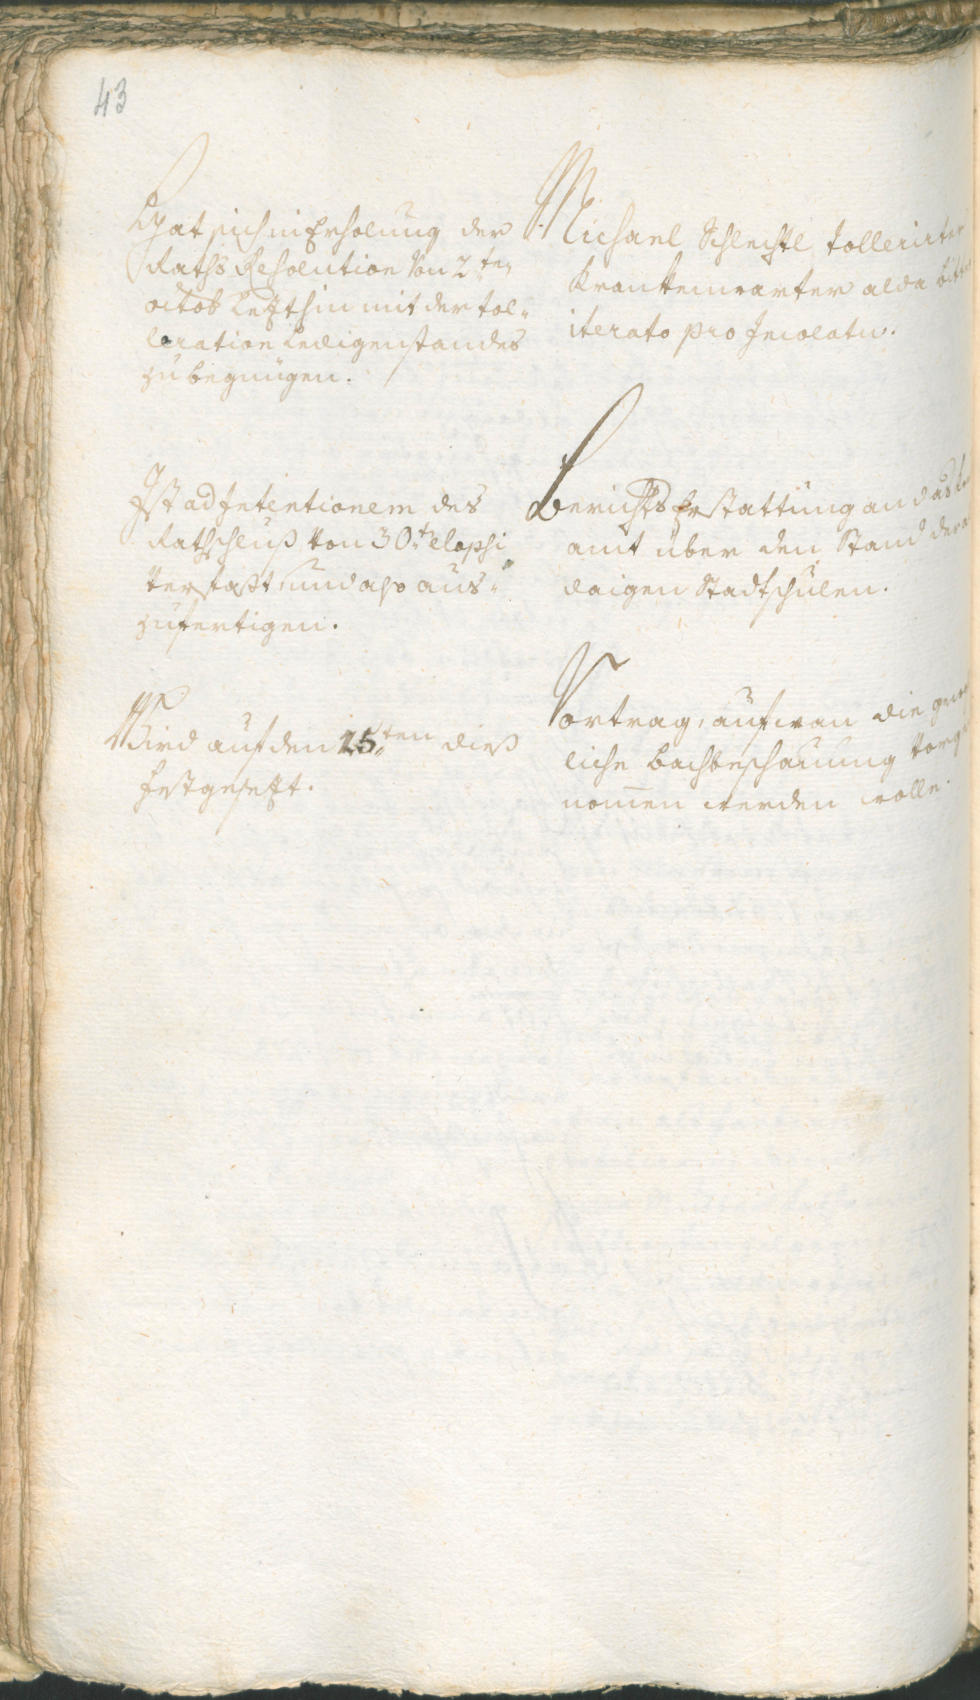 43
Hat sich in Erholung der
Raths Resolution von 2ten
octob letsthin mit der tol-
leration Ledigenstandes
zu begnügen.
Michael Schlechtl tollerirter
Krankenwarter alda bitt
iterato pro Incolatu.
Ist ad Intentionem des
Rathschluß von 30ten elapsi
verfaßt und also aus-
zufertigen.
Berichts Erstattung an das
amt über den Stand der
daigen Stadtschulen.
Wird auf den 15ten dieß
festgesetzt.
Vortrag, auf wan die
liche bachbeschauung
nomen werden wolle.